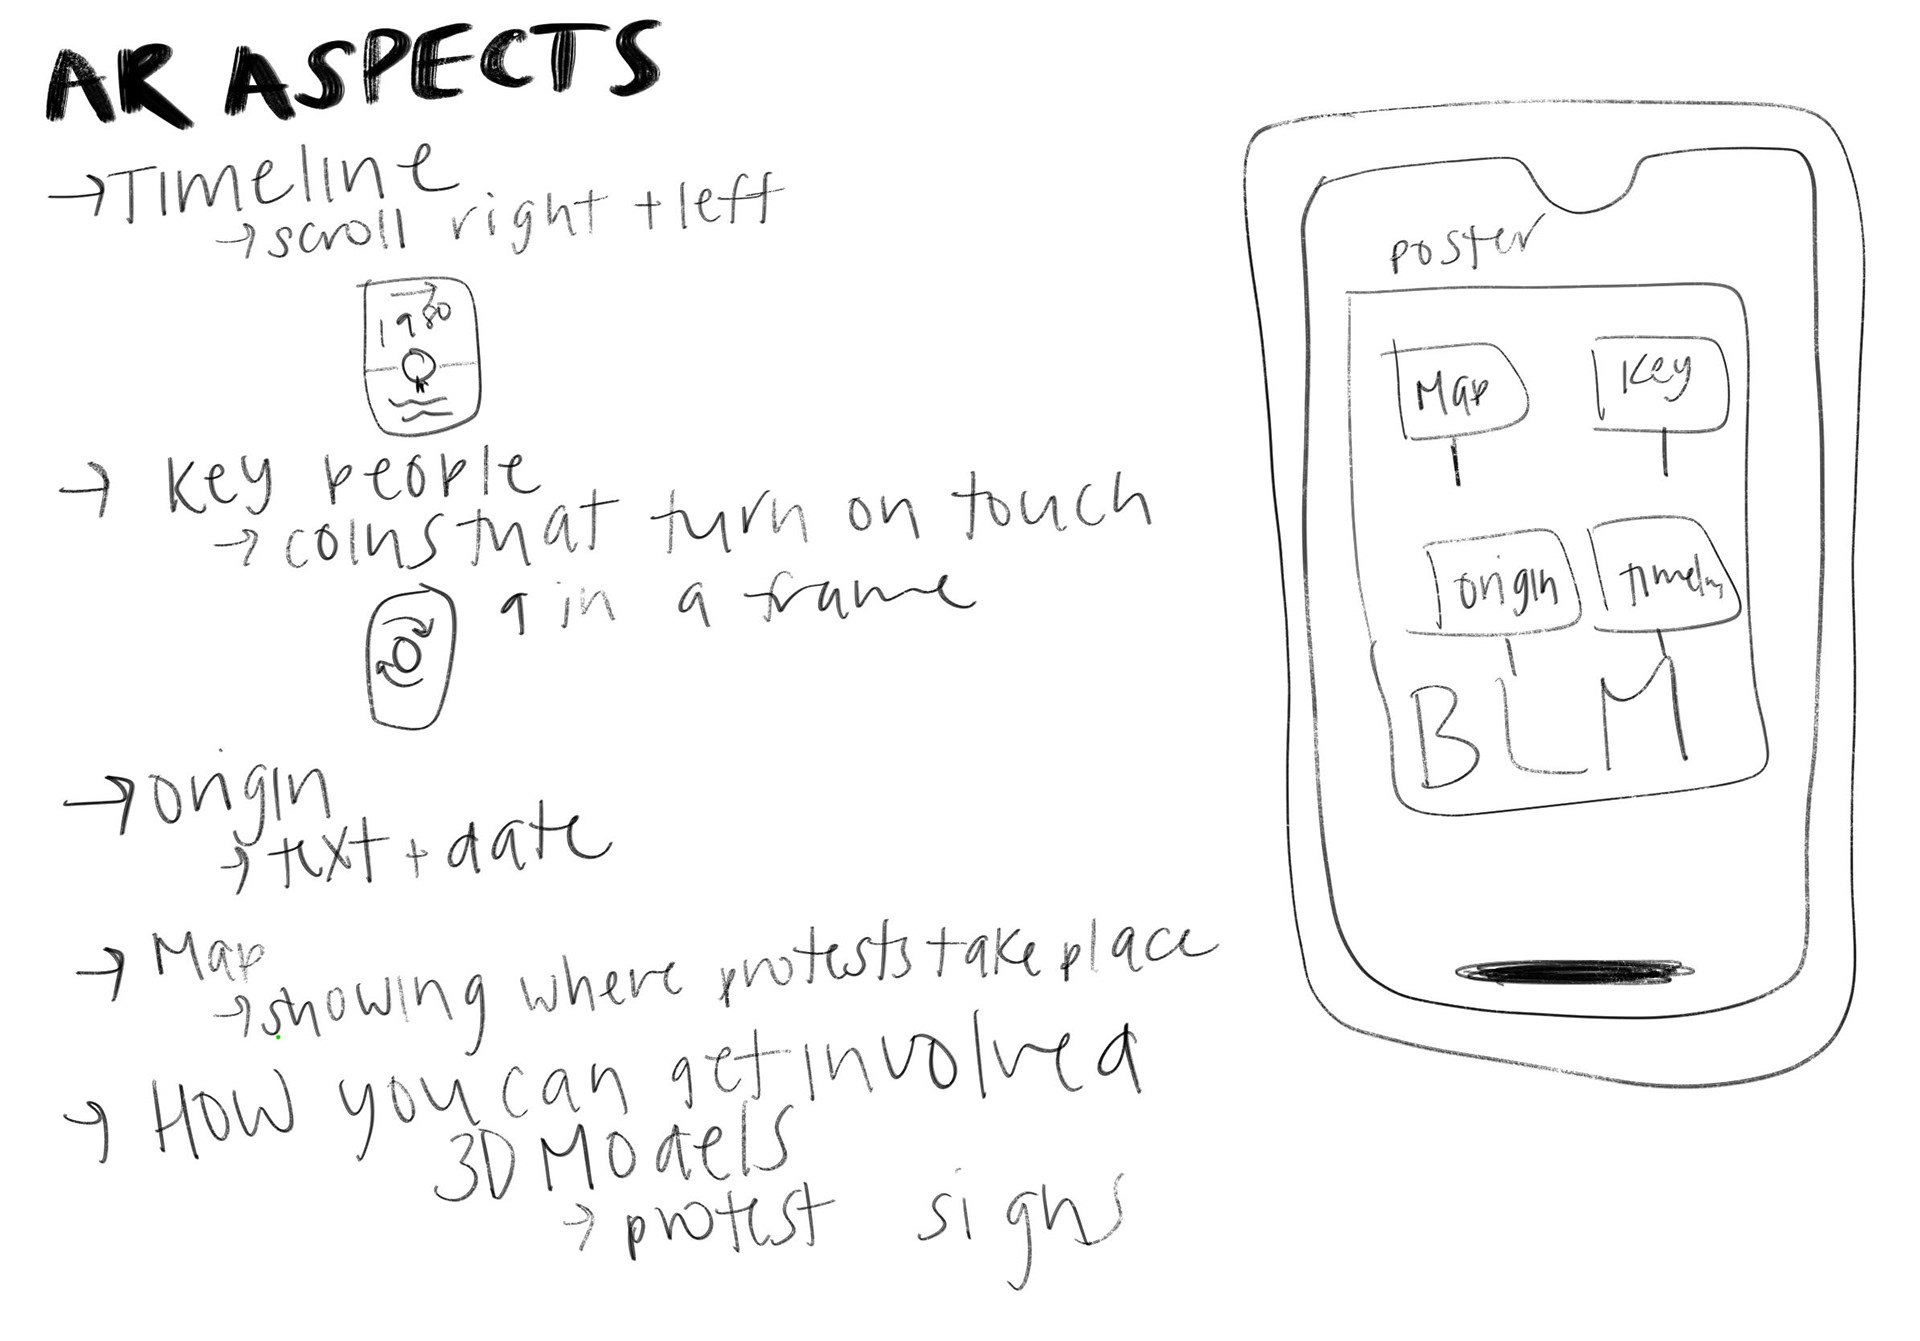 AR ASPECTS
→ Timeline
→ scroll right + left
1980
→ Key people
→ coins that turn on touch
9 in a frame
→ origin
→ text + date
→ Map
→ showing where protests take place
→ How you can get involved
3D Models
→ protest signs
poster
Map Key
origin
BLM